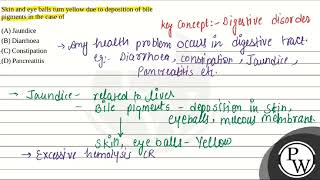 Skin and eye balls turn yellow due to deposition of bile
pigments in the case of
(A) Jaundice
(B) Diarrhoea
(C) Constipation
(D) Pancreatitis
Key Concept:- Digestive disorder
→ Any health problem occurs in digestive tract.
eg:- Diarrhoea, constipation, Jaundice,
Pancreatitis etc.
→ Jaundice - related to liver
- Bile pigments - deposition in skin,
eyeballs, mucous membrane.
skin, eye balls - Yellow
→ Excessive hemolysis OR
PW